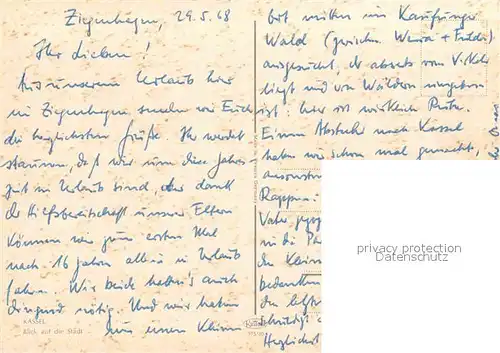 Ziegenhagen, 29.5.68
Ihr Lieben!
Aus unserem Urlaub hier
in Ziegenhagen senden wir Euch
die herzlichsten Grüße. Ihr werdet
staunen, daß wir um diese Jahres
zeit in Urlaub sind, aber dank
der Hilfsbereitschaft unserer Eltern
können wir zum ersten Mal
nach 16 Jahren allein in Urlaub
fahren. Wir beide hatten's auch
dringend nötig. Und wir haben
uns einen kleinen
KASSEL
Blick auf die Stadt
Ort mitten im Kaufunger
Wald (zwischen Werra + Fulda)
ausgesucht, der abseits vom
liegt und von Wäldern umgeben
ist; hier ist wirklich Ruhe.
Einen Abstecher nach Kassel
haben wir schon mal gemacht,
Vater
in die
bedanken
Herzlichst
privacy protection
Datenschutz